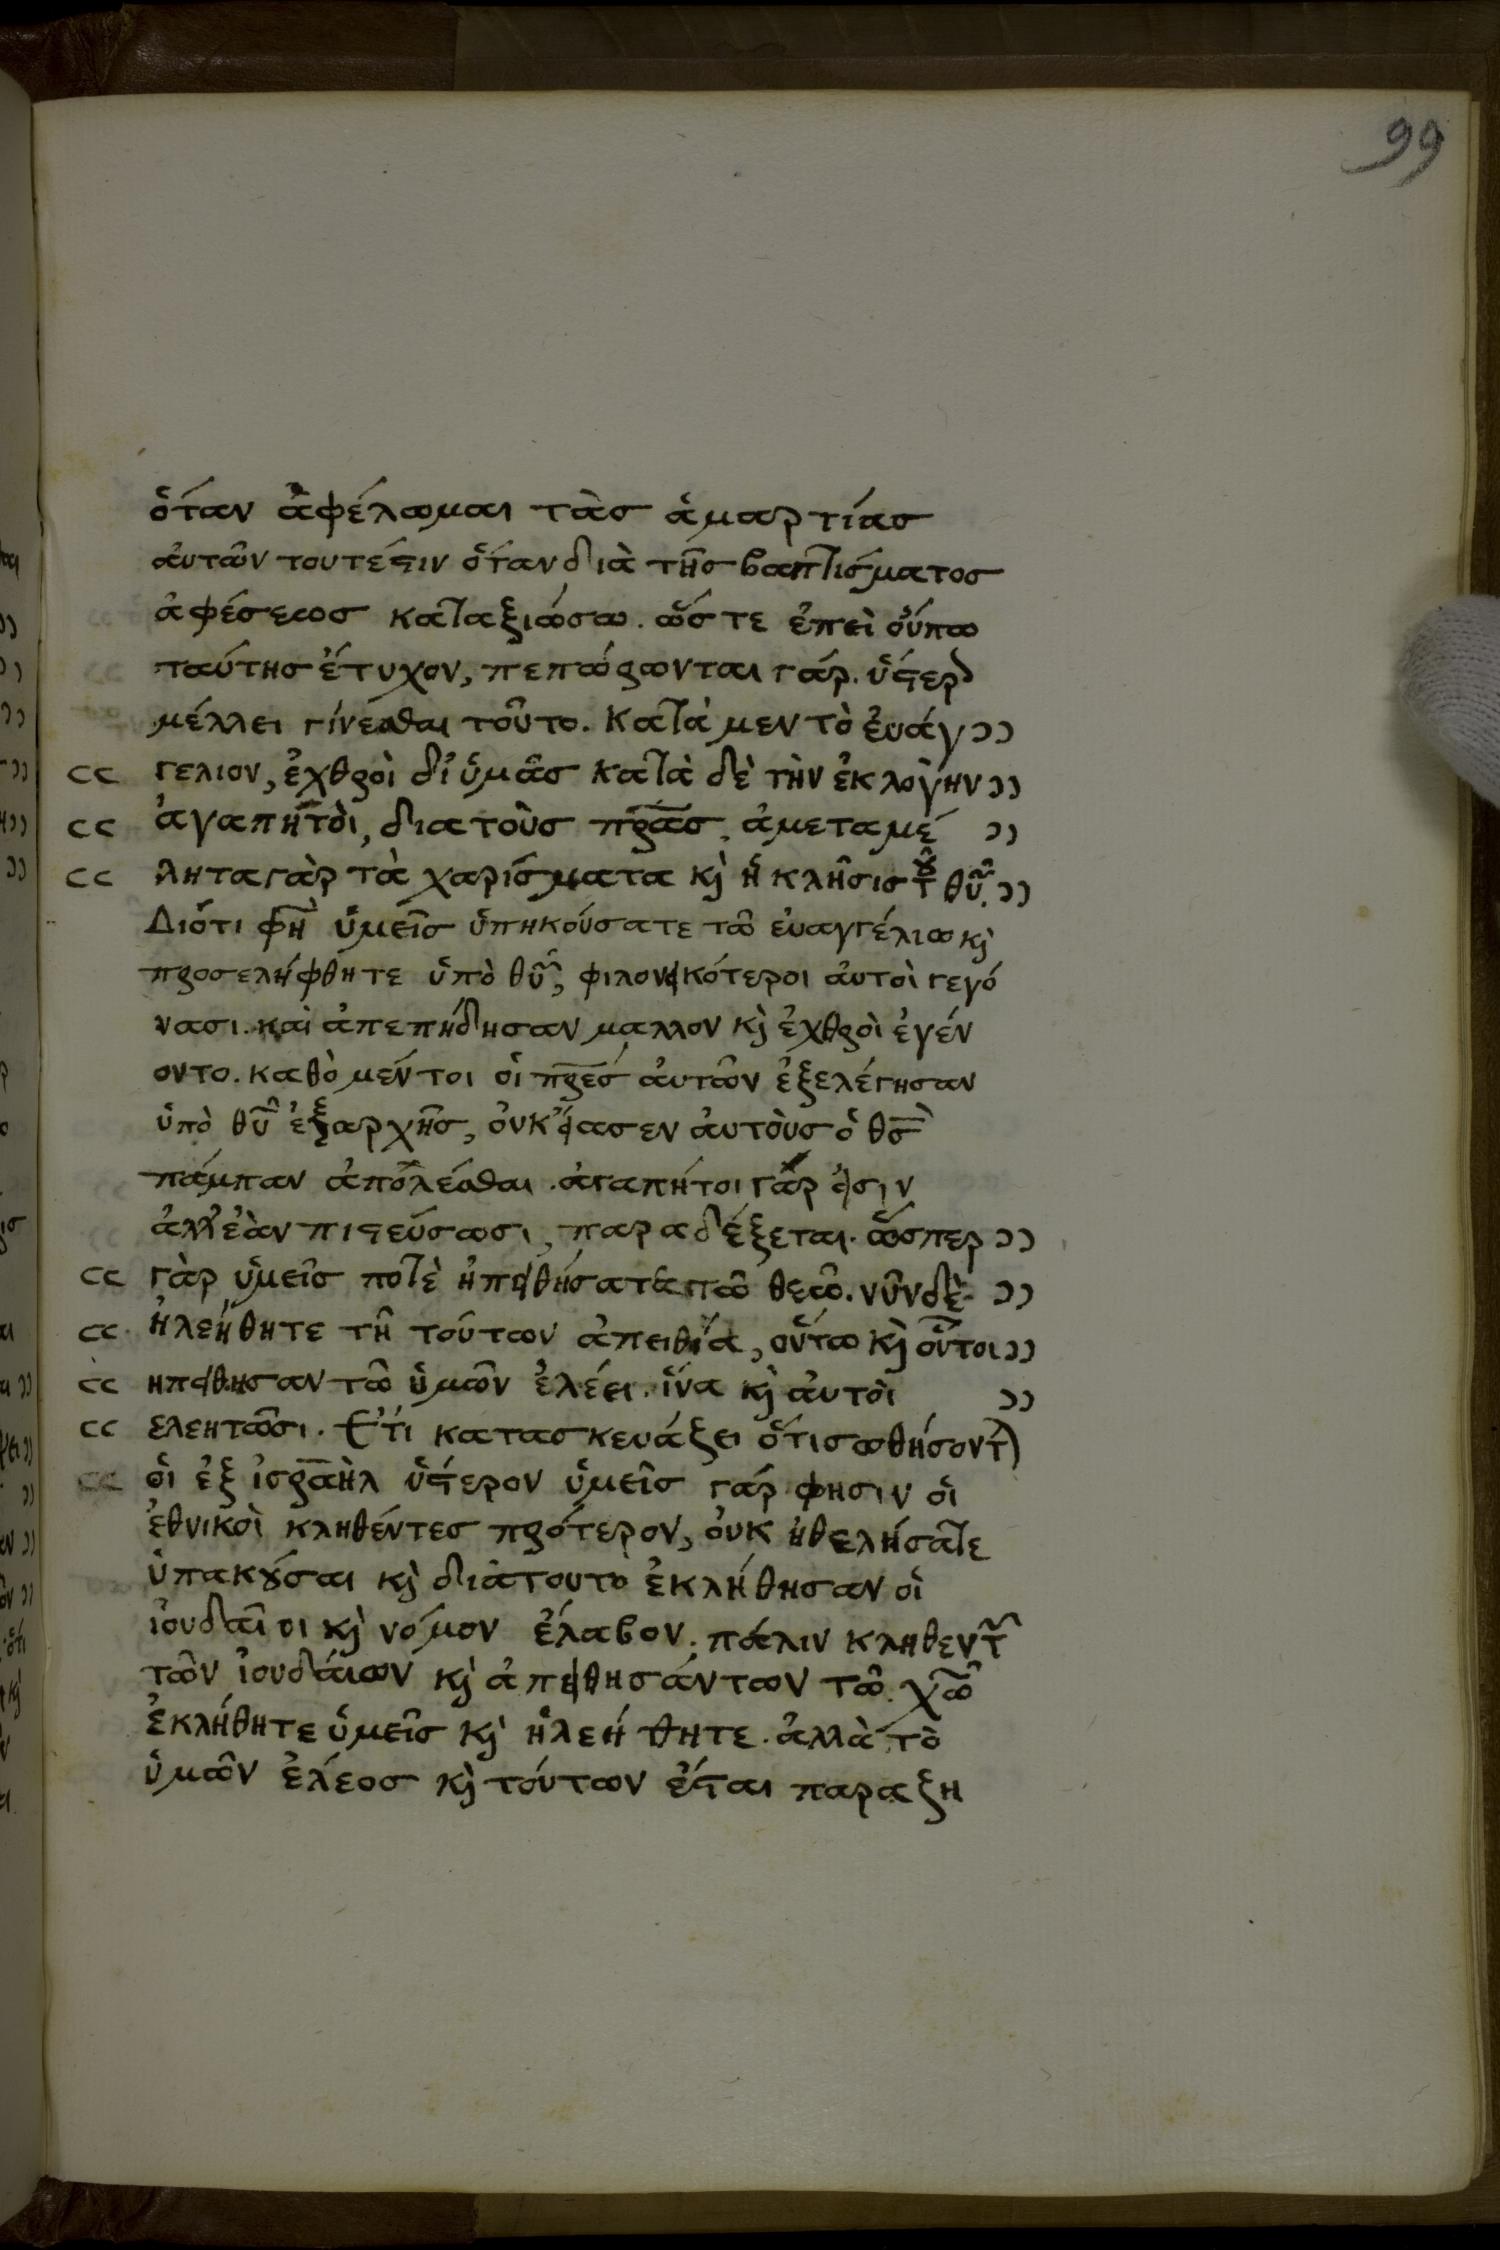 99
ὅταν ἀφέλωμαι τὰσ ἁμαρτίασ
ἀυτῶν τουτέϛιν ὅταν διὰ τῆσ βαπτίσματοσ
ἀφέσεωσ καταξιώσω. ὥστε ἐπεὶ ὄυπω
ταύτησ ἔτυχον, πεπώρωνται γάρ. ὕϛερον
μέλλει γίνεσθαι τοῦτο. Κατὰ μεν τὸ ἐυάγ ))
cc γελιον, ἐχθροὶ δι' ὑμᾶσ κατὰ δὲ τὴν ἐκλογὴν ))
cc ἀγαπητὸι, διατοὺσ πρ̅ασ, ἀμεταμέ ))
cc λητα γὰρ τὰ χαρίσματα κὶ ἡ κλῆσισ τȣ͂ θῦ. ))
Διότι φη ὑμεῖσ ὑπηκούσατε τῶ ἐυαγγέλιω κὶ
προσελήφθητε ὑπὸ θῦ, φιλονεικότεροι ἀυτοὶ γεγό
νασι. καὶ ἀπεπήδησαν μαλλον κὶ ἐχθροὶ ἐγέν
οντο. καθὸ μέντοι ὁι πρ̅εσ ἀυτῶν ἐξελέγησαν
ὑπὸ θῦ ἐξαρχῆσ, ὀυκ' έιασεν ἀυτὸυσ ὁ θσ̅
πάμπαν ἀπολέσθαι. ἀγαπήτοι γὰρ ἐισιν
ἀλλ' ἐὰν πιϛεύσωσι, παραδέξεται. ὥσπερ ))
cc γὰρ ὑμεῖσ ποτὲ ἠπειθήσατε τῶ θεῶ. νῦν δὲ ))
cc ἠλεήθητε τῆ τούτων ἀπειθία, οὕτω κὶ οὗτοι ))
cc ηπειθησαν τῶ ὑμῶν ἐλέει. ἵνα κὶ ἀυτὸι ))
cc ελεητῶσι. Ἔτι κατασκευάζει ὅτι σωθήσοντ)
cc ὁι ἐξ ἰσρ̅αὴλ ὕϛερον ὑμεῖσ γάρ φησιν ὁι
ἐθνικοὶ κληθέντεσ πρότερον, ὀυκ ἠθελήσατε
ὑπακȣ́σαι κὶ διὰτουτο ἐκλήθησαν οἱ
ἰουδαῖοι κὶ νόμον ἔλαβον. πάλιν κληθεντ͂
τῶν ἰουδάιων κὶ ἀπειθησάντων τῶ χῶ
ἐκλήθητε ὑμεῖσ κὶ ἠλεήθητε. ἀλλὰ τὸ
ὑμῶν ἔλεοσ κὶ τόυτων ἔϛαι παραζη